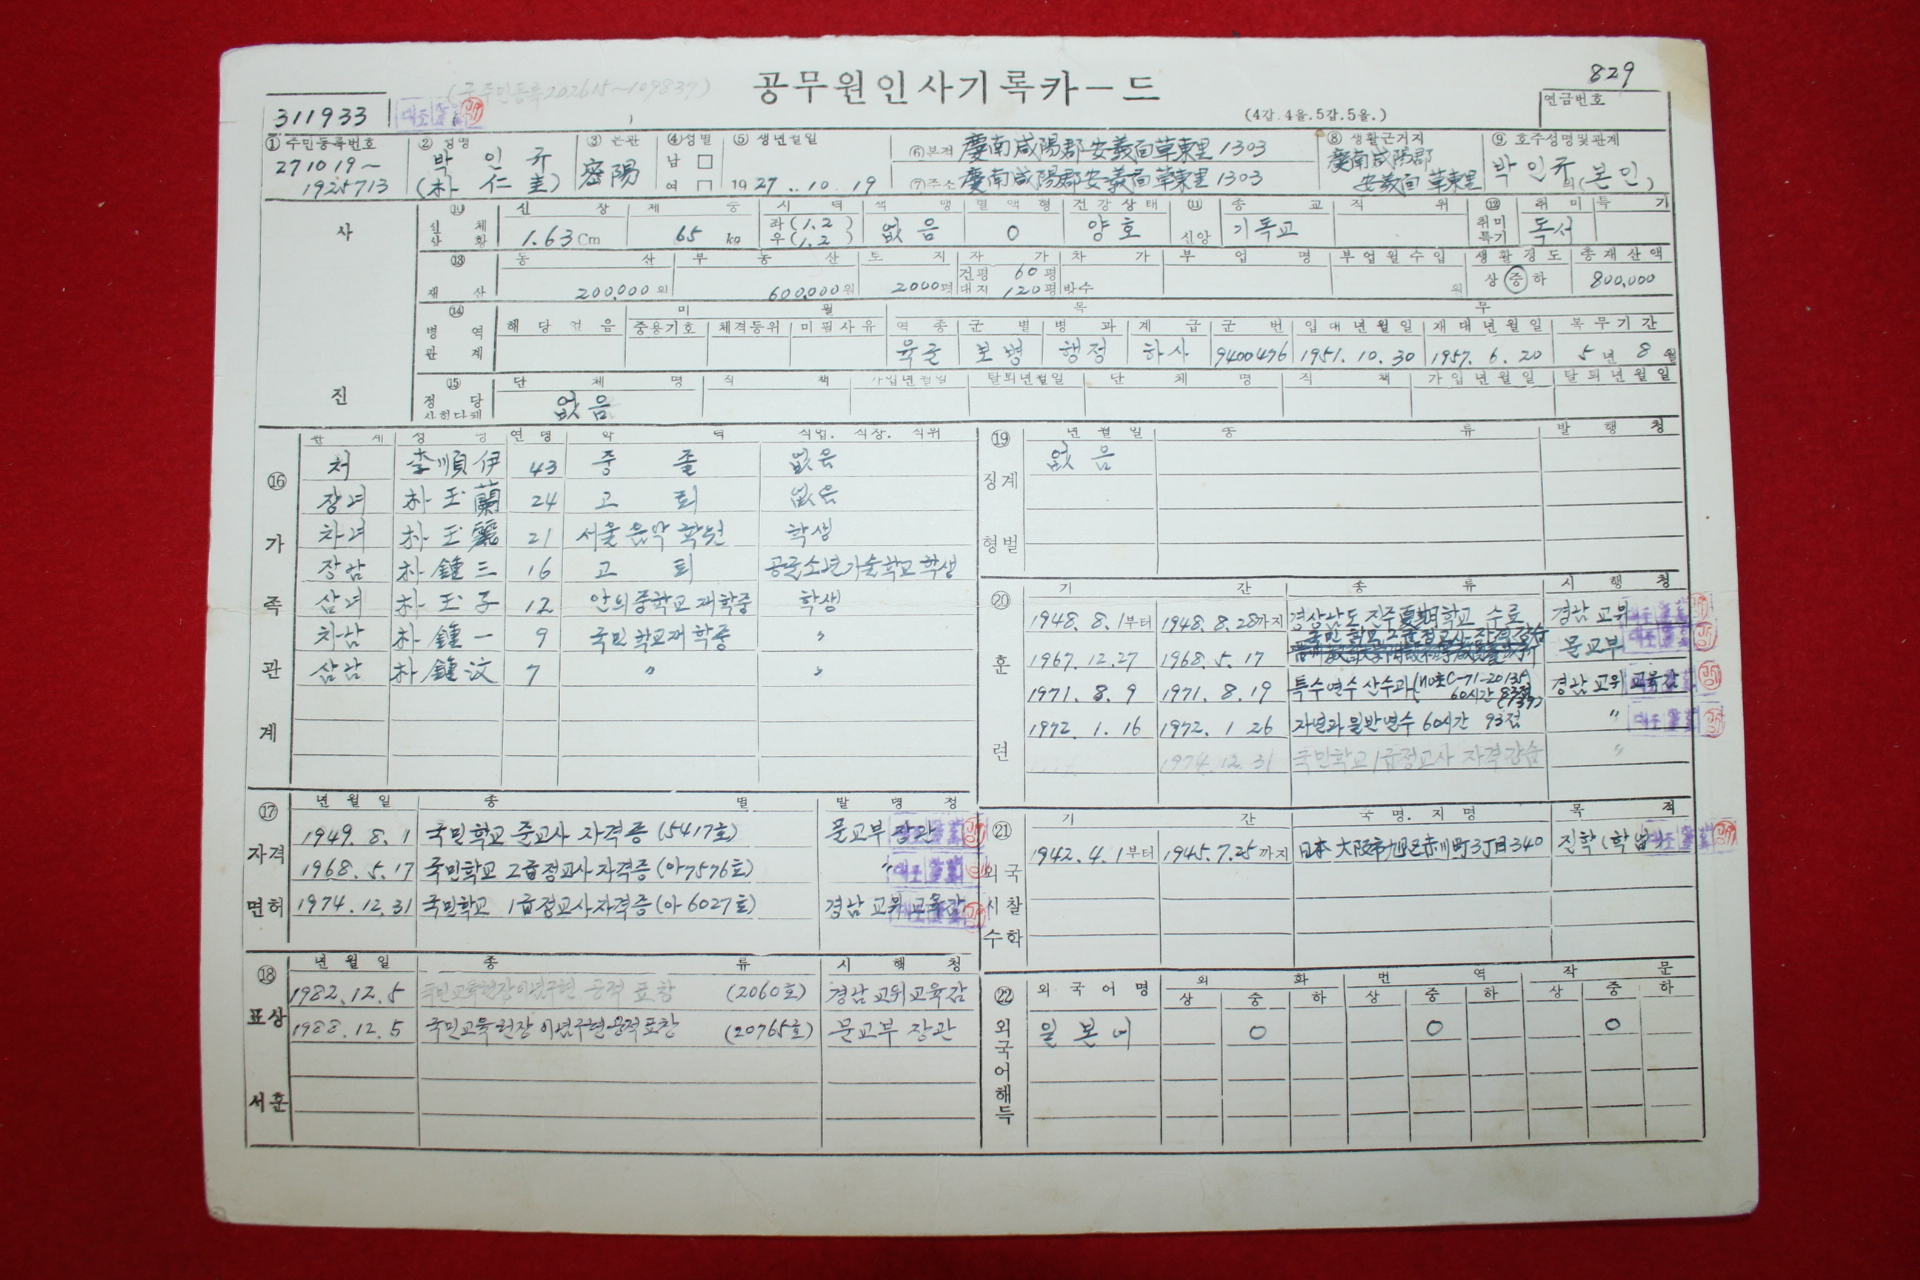 공무원인사기록카ー드
829
연금번호
(4갑.4을.5갑.5을.)
(구주민등록202615~109837)
311933
① 주민등록번호 ② 성명 ③ 본관 ④ 성별 ⑤ 생년월일
271019~
1925713
박 인 규
(朴 仁 圭)
密陽
남 □
여 □
1927. 10. 19
⑥ 본적 慶南咸陽郡安義面草東里 1303
⑦ 주소 慶南咸陽郡安義面草東里 1303
⑧ 생활근거지
慶南咸陽郡
安義面 草東里
⑨ 호주성명및관계
박인규의(본인)
사
진
⑩ 신체상황 신장 체중 시력 색맹 혈액형 건강상태 ⑪ 신앙 종교 직위 ⑫ 취미특기 취미 특기
1.63Cm 65kg 좌(1.2) 우(1.2) 없음 O 양호 기독교 독서
⑬ 재산 동산 부동산 토지 자가 차가 부업명 부업월수입 생활정도 총재산액
200,000원 600,000원 2000평 건평 60평 대지 120평 방수 원 상 중 하 800,000
⑭ 병역관계 미필 복무
해당없음 중용기호 체격등위 미필사유 역종 군별 병과 계급 군번 입대년월일 제대년월일 복무기간
육군 보병 행정 하사 9400476 1951. 10. 30 1957. 6. 20 5년 8월
⑮ 정당사회단체 단체명 직책 가입년월일 탈퇴년월일 단체명 직책 가입년월일 탈퇴년월일
없음
⑯ 가족관계
관계 성명 연령 학력 직업. 직장. 직위
처 李順伊 43 중졸 없음
장녀 朴玉蘭 24 고퇴 없음
차녀 朴玉 21 서울음악학원 학생
장남 朴鍾三 16 고퇴 공군소년기술학교학생
삼녀 朴玉子 12 안의중학교 재학중 학생
차남 朴鍾一 9 국민학교재학중 〃
삼남 朴鍾汶 7 〃 〃
⑰ 자격면허
년월일 종별 발령청
1949. 8. 1 국민학교 준교사 자격증 (5417호) 문교부 장관
1968. 5. 17 국민학교 2급정교사자격증 (아7576호) 〃
1974. 12. 31 국민학교 1급정교사자격증 (아6027호) 경남교위교육감
⑱ 표상서훈
년월일 종류 시행청
1982. 12. 5 국민교육헌장이념구현 공적 표창 (2060호) 경남교위교육감
1988. 12. 5 국민교육헌장이념구현공적표창 (20765호) 문교부 장관
⑲ 징계형벌
년월일 종류 발행청
없음
⑳ 훈련
기간 종류 시행청
1948. 8. 1부터 1948. 8. 28까지 경상남도 진주夏期학교 수료 경남교위
1967. 12. 27 1968. 5. 17 국민학교 2급정교사 자격강습 문교부
1971. 8. 9 1971. 8. 19 특수연수 산수과 60시간 경남교위교육감
1972. 1. 16 1972. 1. 26 자연과일반연수 60시간 93점 〃
1974. 12. 31 국민학교 1급정교사 자격강습 〃
㉑ 외국시찰수학
기간 국명. 지명 목적
1942. 4. 1부터 1945. 7. 25까지 日本大阪市旭区赤川町3丁目340 진학(학업)
㉒ 외국어해득
외국어명 회화 번역 작문
상 중 하 상 중 하 상 중 하
일본어 O O O